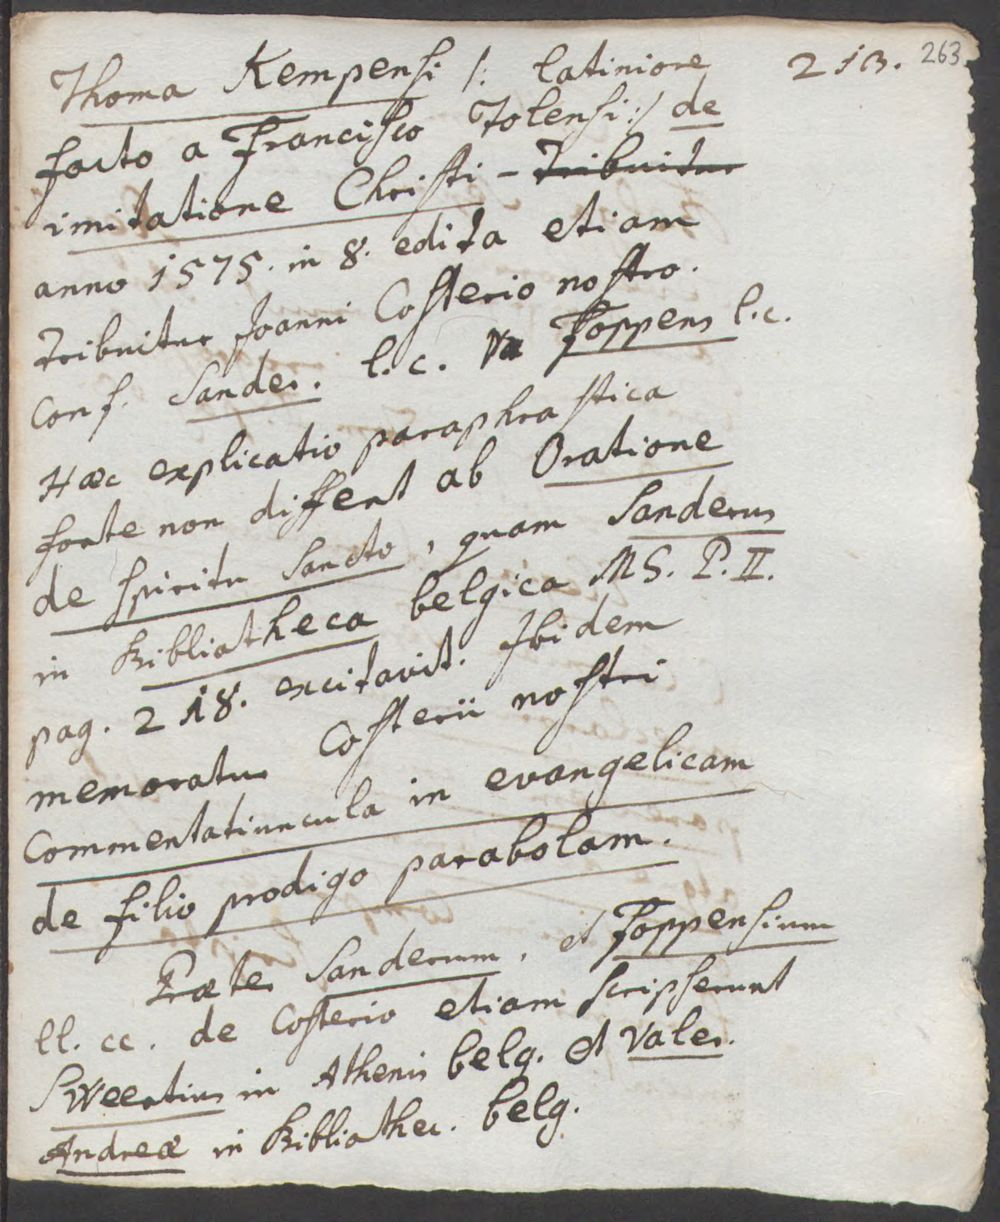 263
213.
Thoma Kempensi /: latiniore
facto a Francisco Tolensi :/ de
imitatione Christi – Tribuitur
anno 1575. in 8. edita etiam
tribuitur Joanni Costerio nostro.
Conf. Sander. l. c. Foppens l. c.
Hæc explicatio paraphrastica
forte non differt ab Oratione
de Spiritu Sancto, quam Sanderus
in Bibliatheca belgica MS. P. II.
pag. 218. excitavit. Ibidem
memoratur Costerii nostri
Commentatiuncula in evangelicam
de filio prodigo parabolam.
Præter Sanderum, et Foppensium
ll. cc. de Costerio etiam scripserunt
Sweertius in Athenis belg. et Valer.
Andreæ in Bibliothec. belg.